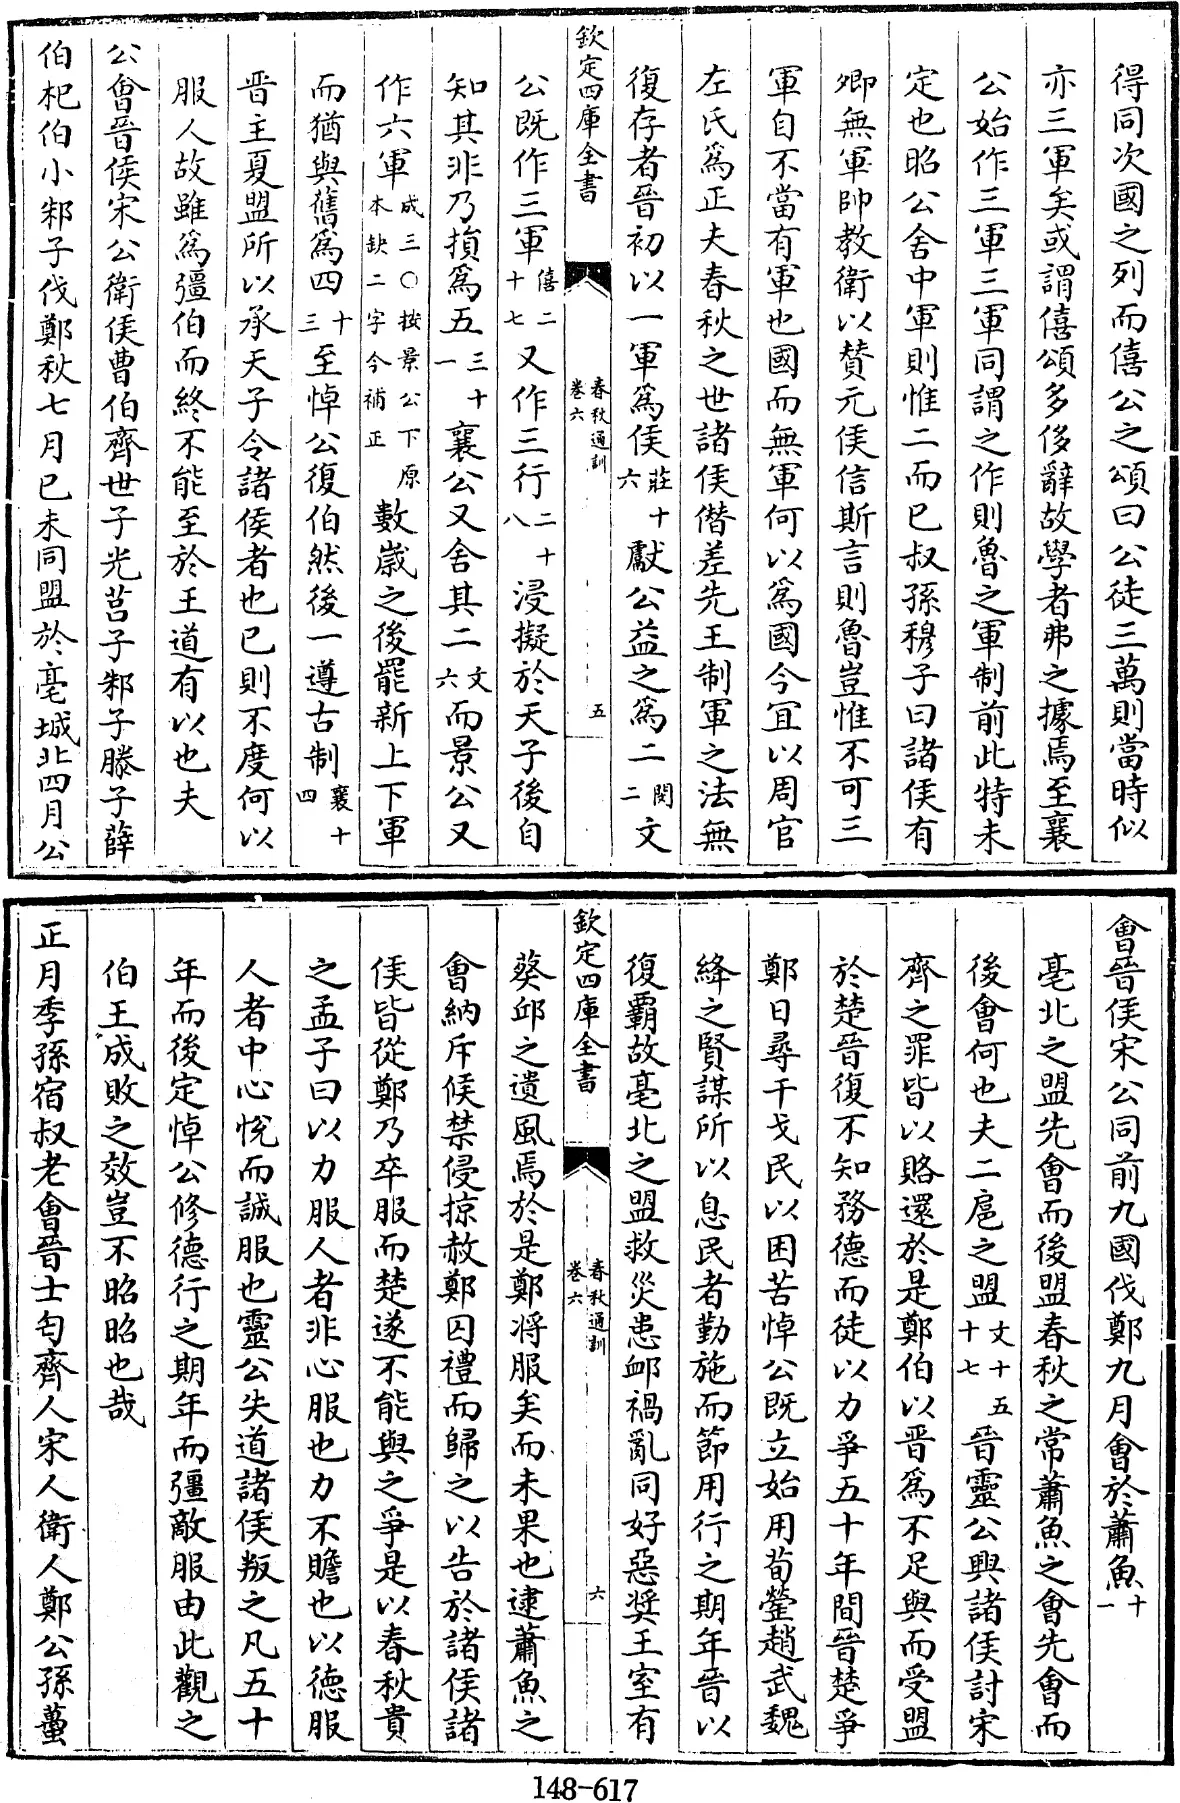 得同次國之列而僖公之頌曰公徒三萬則當時似
亦三軍矣或謂僖頌多侈辭故學者弗之據焉至襄
公始作三軍三軍同謂之作則魯之軍制前此特未
定也昭公舍中軍則惟二而已叔孫穆子曰諸侯有
卿無軍帥教衛以贊元侯信斯言則魯豈惟不可三
軍自不當有軍也國而無軍何以為國今宜以周官
左氏為正夫春秋之世諸侯僭差先王制軍之法無
復存者晉初以一軍為侯莊十六獻公益之為二閔二文
欽定四庫全書
春秋通訓
卷六
五
公既作三軍僖二十七又作三行二十八浸擬於天子後自
知其非乃損為五三十一襄公又舍其二文六而景公又
作六軍成三〇按景公下原本缺二字今補正數歲之後罷新上下軍
而猶與舊為四十三至悼公復伯然後一遵古制襄十四
晉主夏盟所以承天子令諸侯者也已則不度何以
服人故雖為彊伯而終不能至於王道有以也夫
公會晉侯宋公衛侯曹伯齊世子光莒子邾子滕子薛
伯杞伯小邾子伐鄭秋七月已未同盟於亳城北四月公
會晉侯宋公同前九國伐鄭九月會於蕭魚十一
亳北之盟先會而後盟春秋之常蕭魚之會先會而
後會何也夫二扈之盟文十五十七晉靈公興諸侯討宋
齊之罪皆以賂還於是鄭伯以晉為不足與而受盟
於楚晉復不知務德而徒以力爭五十年間晉楚爭
鄭日尋干戈民以困苦悼公既立始用荀罃趙武魏
絳之賢謀所以息民者勤施而節用行之期年晉以
復霸故亳北之盟救災患卹禍亂同好惡奨王室有
欽定四庫全書
春秋通訓
卷六
六
葵邱之遺風焉於是鄭將服矣而未果也逮蕭魚之
會納斥候禁侵掠赦鄭囚禮而歸之以告於諸侯諸
侯皆從鄭乃卒服而楚遂不能與之爭是以春秋貴
之孟子曰以力服人者非心服也力不贍也以德服
人者中心悅而誠服也靈公失道諸侯叛之凡五十
年而後定悼公修德行之期年而彊敵服由此觀之
伯王成敗之效豈不昭昭也哉
正月季孫宿叔老會晉士匄齊人宋人衛人鄭公孫蠆
148-617